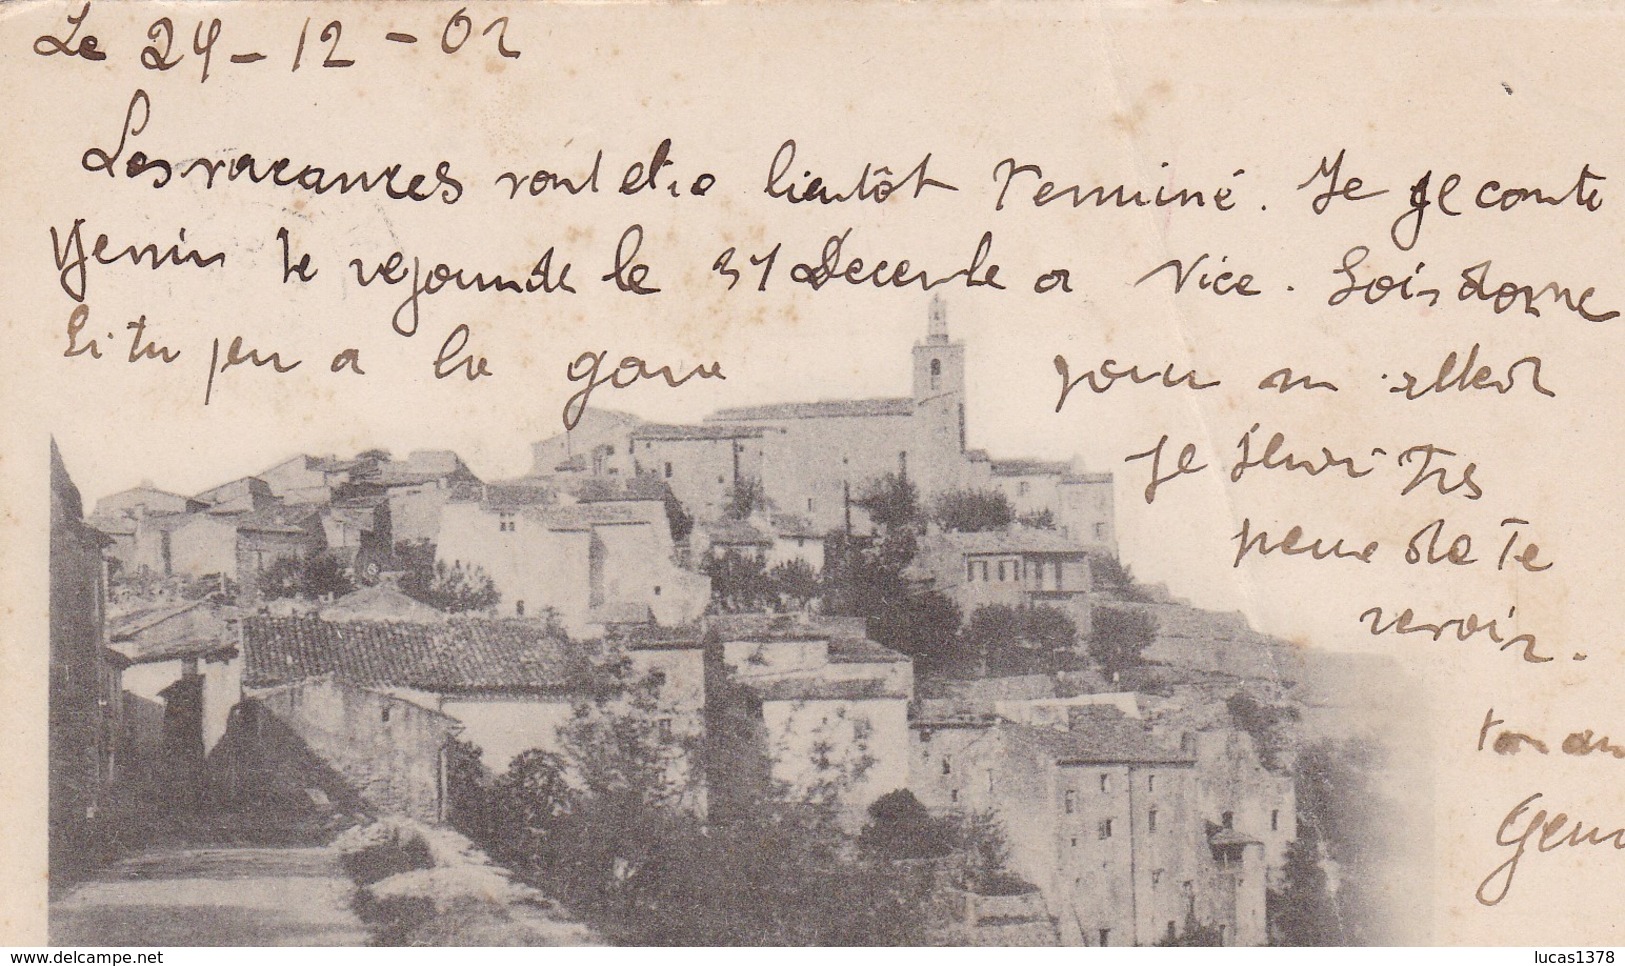 Le 24-12-02
Les vacances vont etre bientôt Terminé. Je Je compte
venir te rejoindre le 31 Decembre a Nice. Sois donc
Si tu peu a la gare pour m
je serai Tres
heureux de Te
revoir.
ton am
www.delcampe.net
lucas1378